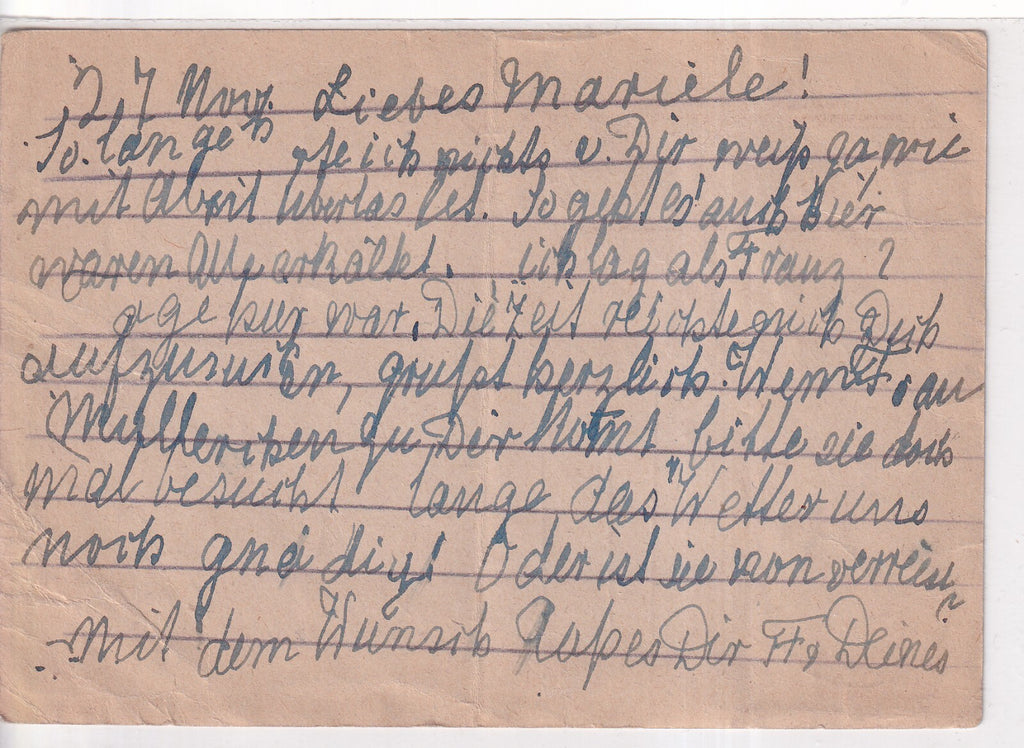 27 Nov. Liebes Mariele!
So. lange ich nichts v. Dir weiß ga wie
mit Abeit überlastet. So geht es auch hier
waren Alle erkältet. ich lag als Franz 2
age hier war. Die Zeit reichte nich Dich
aufzusuchen, grüßt herzlich. Wenn Frau
zu Dir komt bitte sie doch
mal besucht lange das Wetter uns
noch gnädig! Oder ist sie von verreist?
Mit dem Wunsch es Dir Fr. Deines